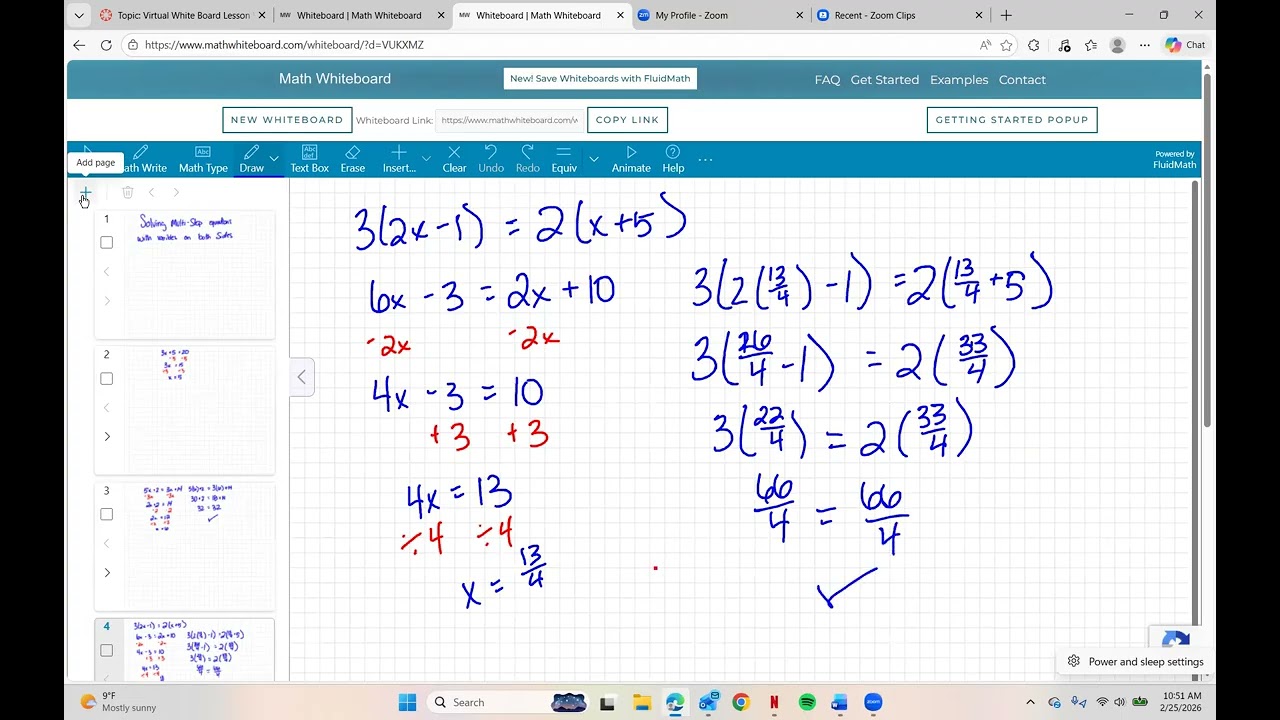 Topic: Virtual White Board Lesson
Whiteboard | Math Whiteboard
Whiteboard | Math Whiteboard
My Profile - Zoom
Recent - Zoom Clips
https://www.mathwhiteboard.com/whiteboard/?d=VUKXMZ
Chat
Math Whiteboard
New! Save Whiteboards with FluidMath
FAQ
Get Started
Examples
Contact
NEW WHITEBOARD
Whiteboard Link:
https://www.mathwhiteboard.com/w
COPY LINK
GETTING STARTED POPUP
Add page
Math Write
Math Type
Draw
Text Box
Erase
Insert...
Clear
Undo
Redo
Equiv
Animate
Help
Powered by
FluidMath
1
Solving Multi-Step equations
with variables on both Sides
2
3x + 5 = 20
-5 -5
3x = 15
÷3 ÷3
x = 5
3
4
3(2x-1) = 2(x+5)
6x - 3 = 2x + 10
-2x -2x
4x - 3 = 10
+3 +3
4x = 13
÷4 ÷4
x = 13/4
3(2(13/4) - 1) = 2(13/4 + 5)
3(26/4 - 1) = 2(33/4)
3(22/4) = 2(33/4)
66/4 = 66/4
✓
Power and sleep settings
9°F
Mostly sunny
Search
10:51 AM
2/25/2026